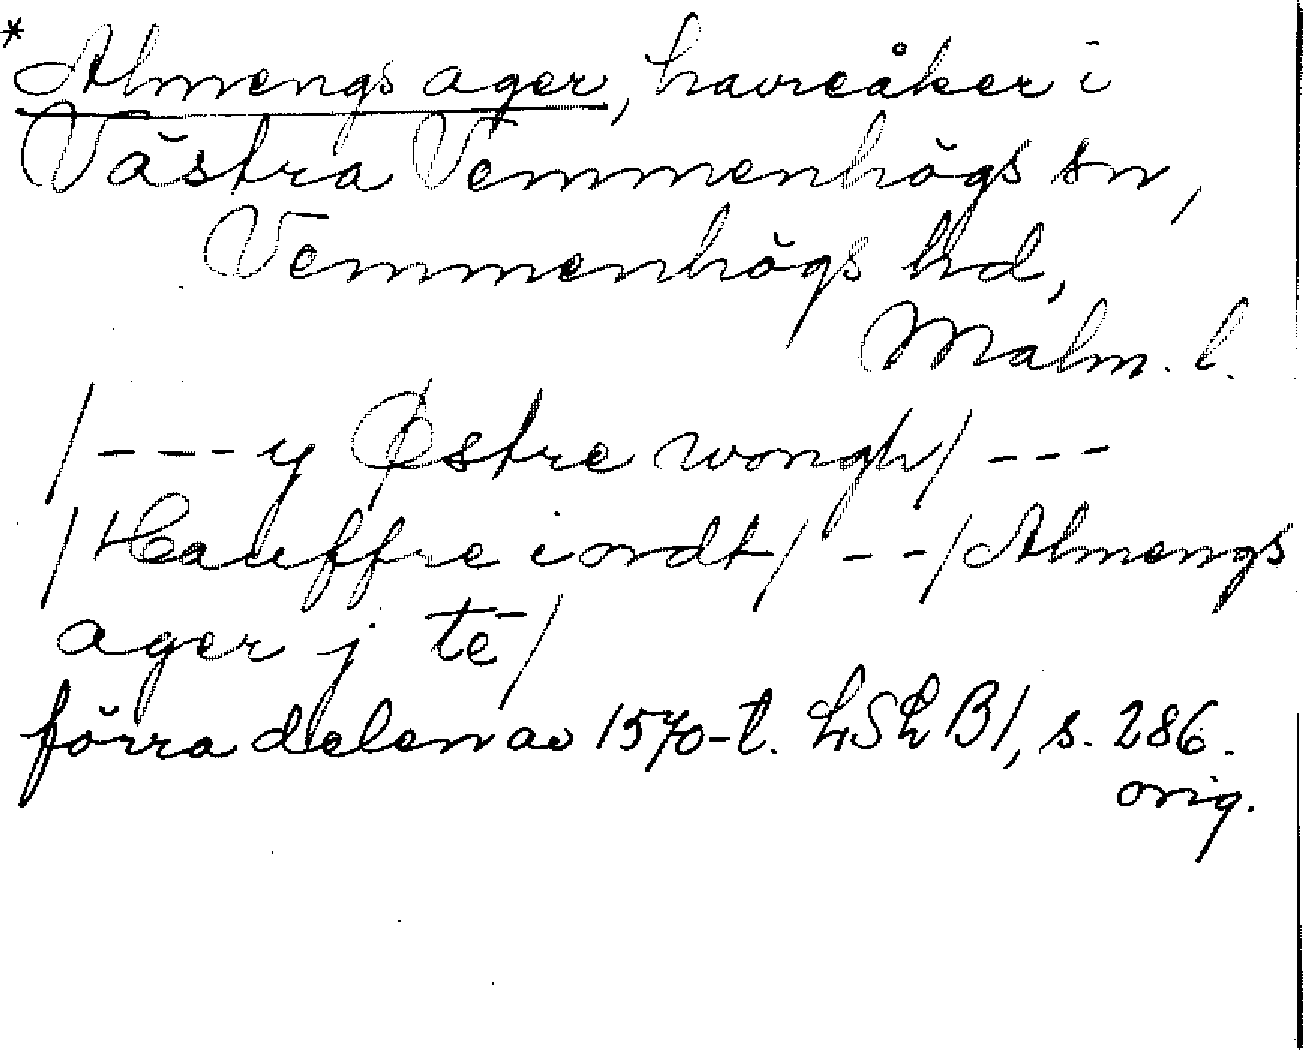 *Almengs ager, havreåker i
Västra Vemmenhögs sn,
Vemmenhögs hd,
Malm. l.
/---y Østre wongh/ ---
/Hauffre iordt/ --/Almengs
ager j tē/
förra delen av 1570-t. LSLB1, s. 286.
orig.